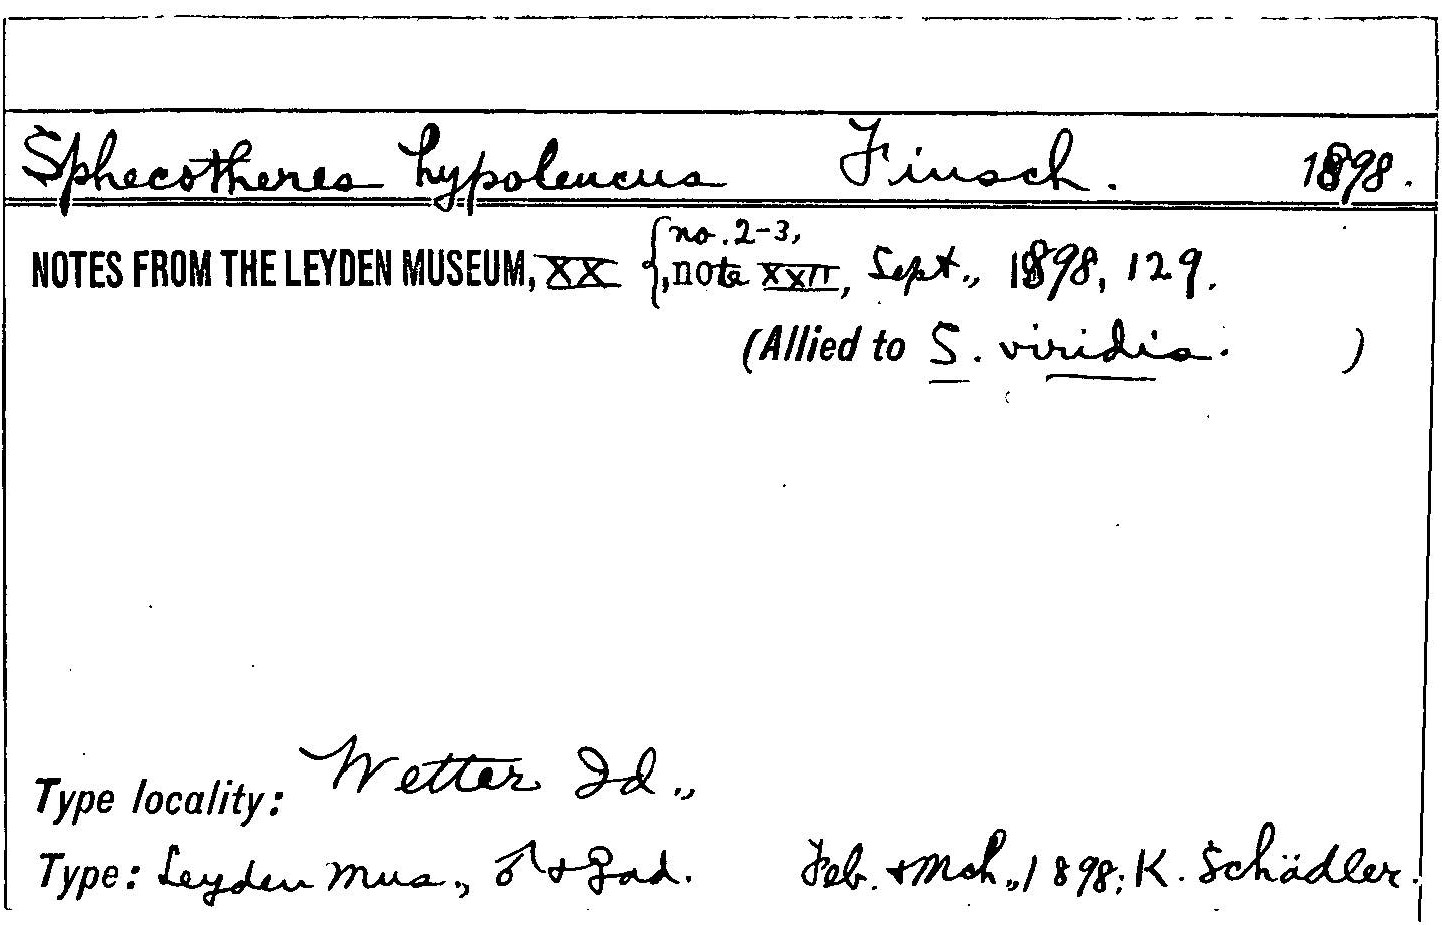 Sphecotheres hypoleucus Finsch. 1898.
NOTES FROM THE LEYDEN MUSEUM, XX {no. 2-3, , note XXII, Sept., 1898, 129.
(Allied to S. viridis. )
Type locality: Wetter Id.,
Type: Leyden Mus., ♂ + ♀ ad. Feb. + Mch., 1898; K. Schädler.